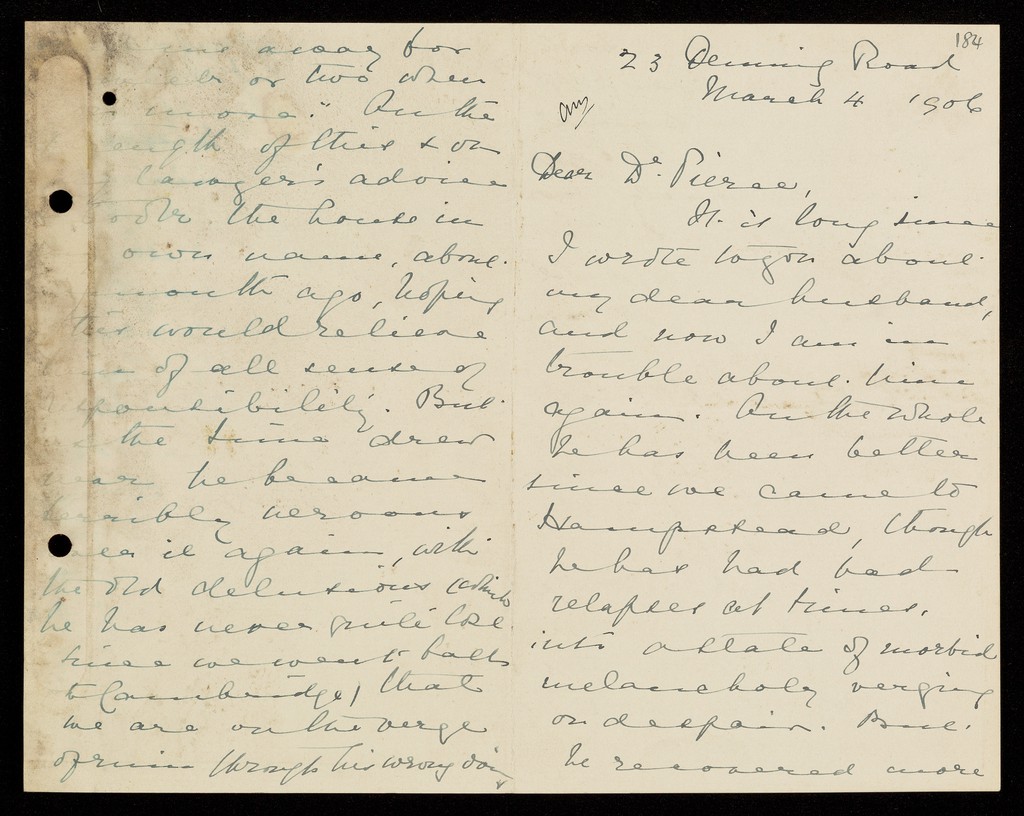 184
23 Denning Road
March 4 1906
Ansd
Dear Dr. Pierce,
It is long since
I wrote to you about
my dear husband,
and now I am in
trouble about him
again. On the whole
he has been better
since we came to
Hampstead, though
he has had bad
relapses at times,
into a state of morbid
melancholy verging
on despair. But
he recovered more
away for
or two when
more." On the
of this & on
lawyer's advice
the house in
own name, about
month ago, hoping
this would relieve
of all sense of
responsibility. But
the time drew
near he became
terribly nervous
over it again, with
the old delusions (which
he has never quite lost
since we went back
to Cambridge) that
we are on the verge
of ruin through his wrong doing